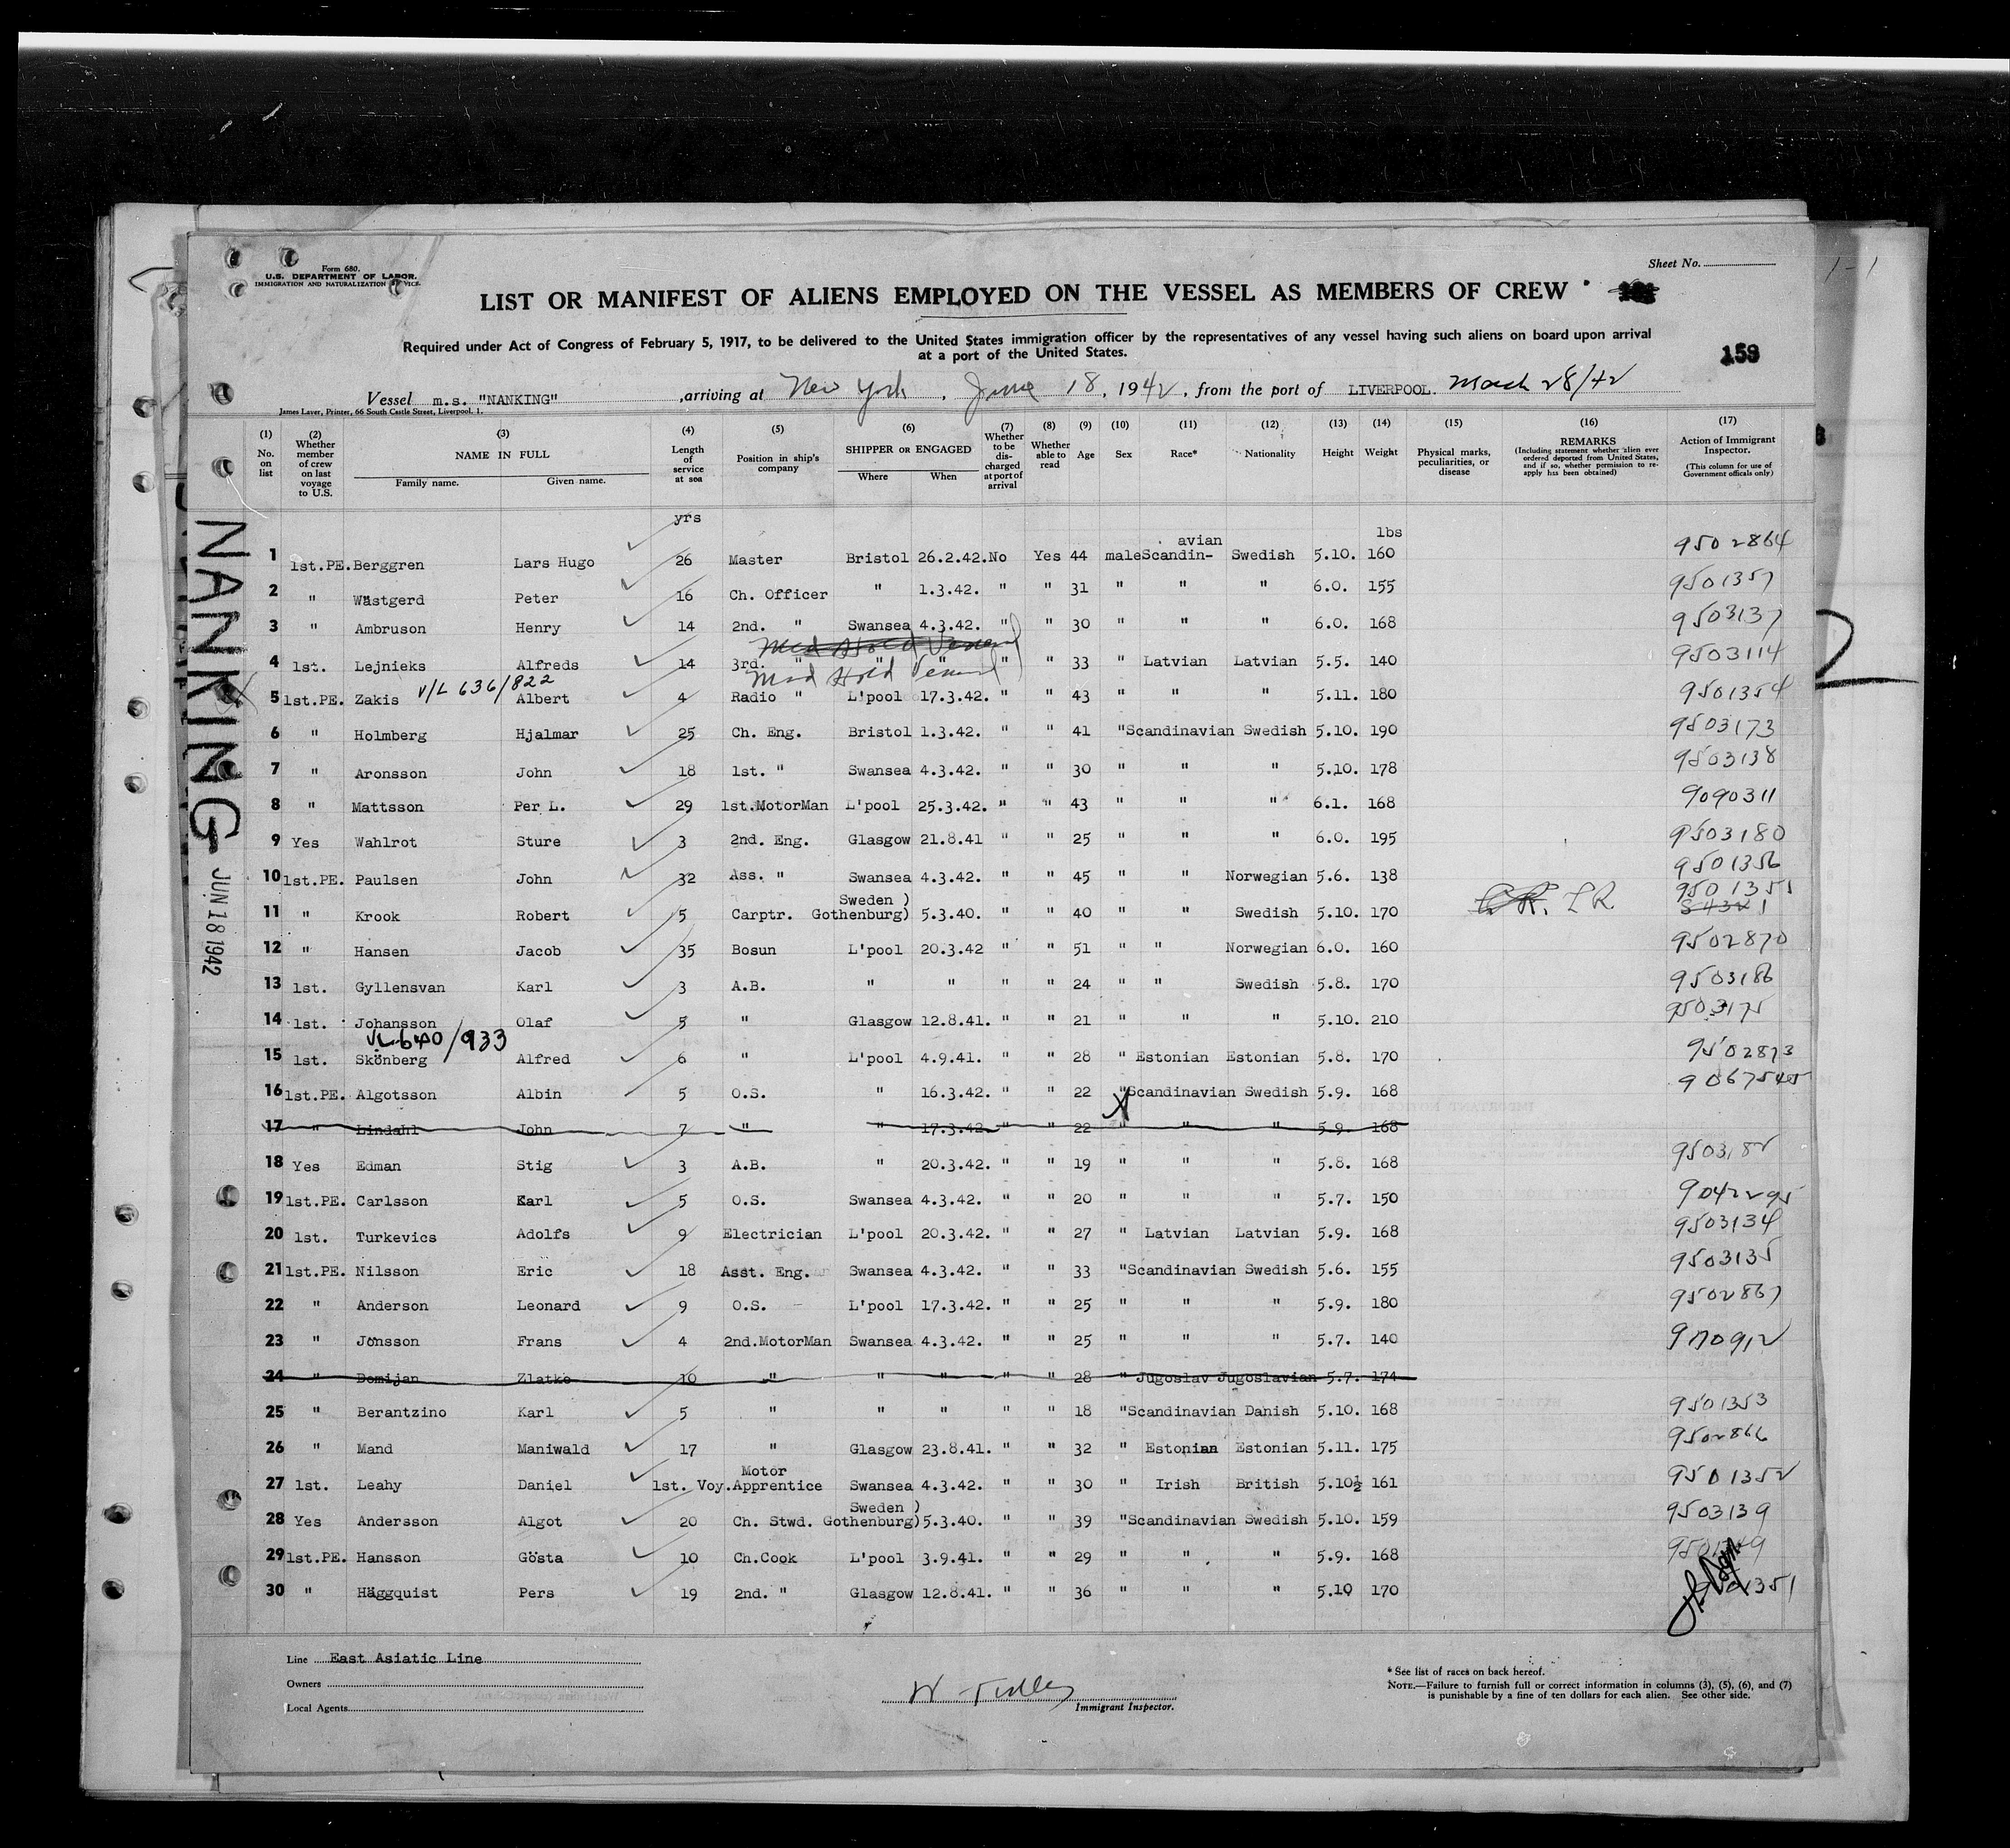 Form 680.
U.S. DEPARTMENT OF LABOR.
IMMIGRATION AND NATURALIZATION
Sheet No.
LIST OR MANIFEST OF ALIENS EMPLOYED ON THE VESSEL AS MEMBERS OF CREW
Required under Act of Congress of February 5, 1917, to be delivered to the United States immigration officer by the representatives of any vessel having such aliens on board upon arrival
at a port of the United States.
159
Vessel m.s. "NANKING" , arriving at New York , June 18, 1942, from the port of LIVERPOOL. March 28/42
James Laver, Printer, 66 South Castle Street, Liverpool, 1.
(1) No. on list
(2) Whether member of crew on last voyage to U.S.
(3) NAME IN FULL
Family name. Given name.
(4) Length of service at sea
(5) Position in ship's company
(6) SHIPPER OR ENGAGED
Where When
(7) Whether to be discharged at port of arrival
(8) Whether able to read
(9) Age
(10) Sex
(11) Race*
(12) Nationality
(13) Height
(14) Weight
(15) Physical marks, peculiarities, or disease
(16) REMARKS (Including statement whether alien ever ordered deported from United States, and if so, whether permission to re-apply has been obtained)
(17) Action of Immigrant Inspector.
(This column for use of Government officals only)
yrs lbs
avian
1 1st.PE. Berggren Lars Hugo 26 Master Bristol 26.2.42. No Yes 44 male Scandin- Swedish 5.10. 160 9502864
2 " Wästgerd Peter 16 Ch. Officer " 1.3.42. " " 31 " " " 6.0. 155 9501357
3 " Ambruson Henry 14 2nd. " Swansea 4.3.42. " " 30 " " " 6.0. 168 9503137
4 1st. Lejnieks Alfreds 14 3rd. " " " " " 33 " Latvian Latvian 5.5. 140 9503114
Med Hold
V/L 636/822
5 1st.PE. Zakis Albert 4 Radio " L'pool 17.3.42. " " 43 " " " 5.11. 180 9501354
6 " Holmberg Hjalmar 25 Ch. Eng. Bristol 1.3.42. " " 41 " Scandinavian Swedish 5.10. 190 9503173
7 " Aronsson John 18 1st. " Swansea 4.3.42. " " 30 " " " 5.10. 178 9503138
8 " Mattsson Per L. 29 1st.MotorMan L'pool 25.3.42. " " 43 " " " 6.1. 168 9090311
9 Yes Wahlrot Sture 3 2nd. Eng. Glasgow 21.8.41 " " 25 " " " 6.0. 195 9503180
10 1st.PE. Paulsen John 32 Ass. " Swansea 4.3.42. " " 45 " " Norwegian 5.6. 138 9501356
Sweden )
11 " Krook Robert 5 Carptr. Gothenburg) 5.3.40. " " 40 " " Swedish 5.10. 170 9501355
12 " Hansen Jacob 35 Bosun L'pool 20.3.42 " " 51 " " Norwegian 6.0. 160 9502870
13 1st. Gyllensvan Karl 3 A.B. " " " " 24 " " Swedish 5.8. 170 9503186
14 1st. Johansson Olaf 5 " Glasgow 12.8.41. " " 21 " " " 5.10. 210 9503175
VL 640/933
15 1st. Skönberg Alfred 6 " L'pool 4.9.41. " " 28 " Estonian Estonian 5.8. 170 9502873
16 1st.PE. Algotsson Albin 5 O.S. " 16.3.42. " " 22 " Scandinavian Swedish 5.9. 168 9067545
17 " Lindahl John 7 " " 17.3.42. " " 22 " " " 5.9. 168
18 Yes Edman Stig 3 A.B. " 20.3.42. " " 19 " " " 5.8. 168 9503182
19 1st.PE. Carlsson Karl 5 O.S. Swansea 4.3.42. " " 20 " " " 5.7. 150 9042295
20 1st. Turkevics Adolfs 9 Electrician L'pool 20.3.42. " " 27 " Latvian Latvian 5.9. 168 9503134
21 1st.PE. Nilsson Eric 18 Asst. Eng. Swansea 4.3.42. " " 33 " Scandinavian Swedish 5.6. 155 9503135
22 " Anderson Leonard 9 O.S. L'pool 17.3.42. " " 25 " " " 5.9. 180 9502867
23 " Jönsson Frans 4 2nd.MotorMan Swansea 4.3.42. " " 25 " " " 5.7. 140
24 " Domijan Zlatko 10 " " " " " 28 " Jugoslav Jugoslavian 5.7. 174
25 " Berantzino Karl 5 " " " " " 18 " Scandinavian Danish 5.10. 168 9501353
26 " Mand Maniwald 17 " Glasgow 23.8.41. " " 32 " Estonian Estonian 5.11. 175 9502866
Motor
27 1st. Leahy Daniel 1st. Voy. Apprentice Swansea 4.3.42. " " 30 " Irish British 5.10½ 161 9501352
Sweden )
28 Yes Andersson Algot 20 Ch. Stwd. Gothenburg) 5.3.40. " " 39 " Scandinavian Swedish 5.10. 159 9503139
29 1st.PE. Hansson Gösta 10 Ch.Cook L'pool 3.9.41. " " 29 " " " 5.9. 168
30 " Häggquist Pers 19 2nd. " Glasgow 12.8.41. " " 36 " " " 5.10 170
NANKING
JUN 18 1942
Line East Asiatic Line
Owners
Local Agents
Immigrant Inspector.
* See list of races on back hereof.
NOTE.—Failure to furnish full or correct information in columns (3), (5), (6), and (7)
is punishable by a fine of ten dollars for each alien. See other side.